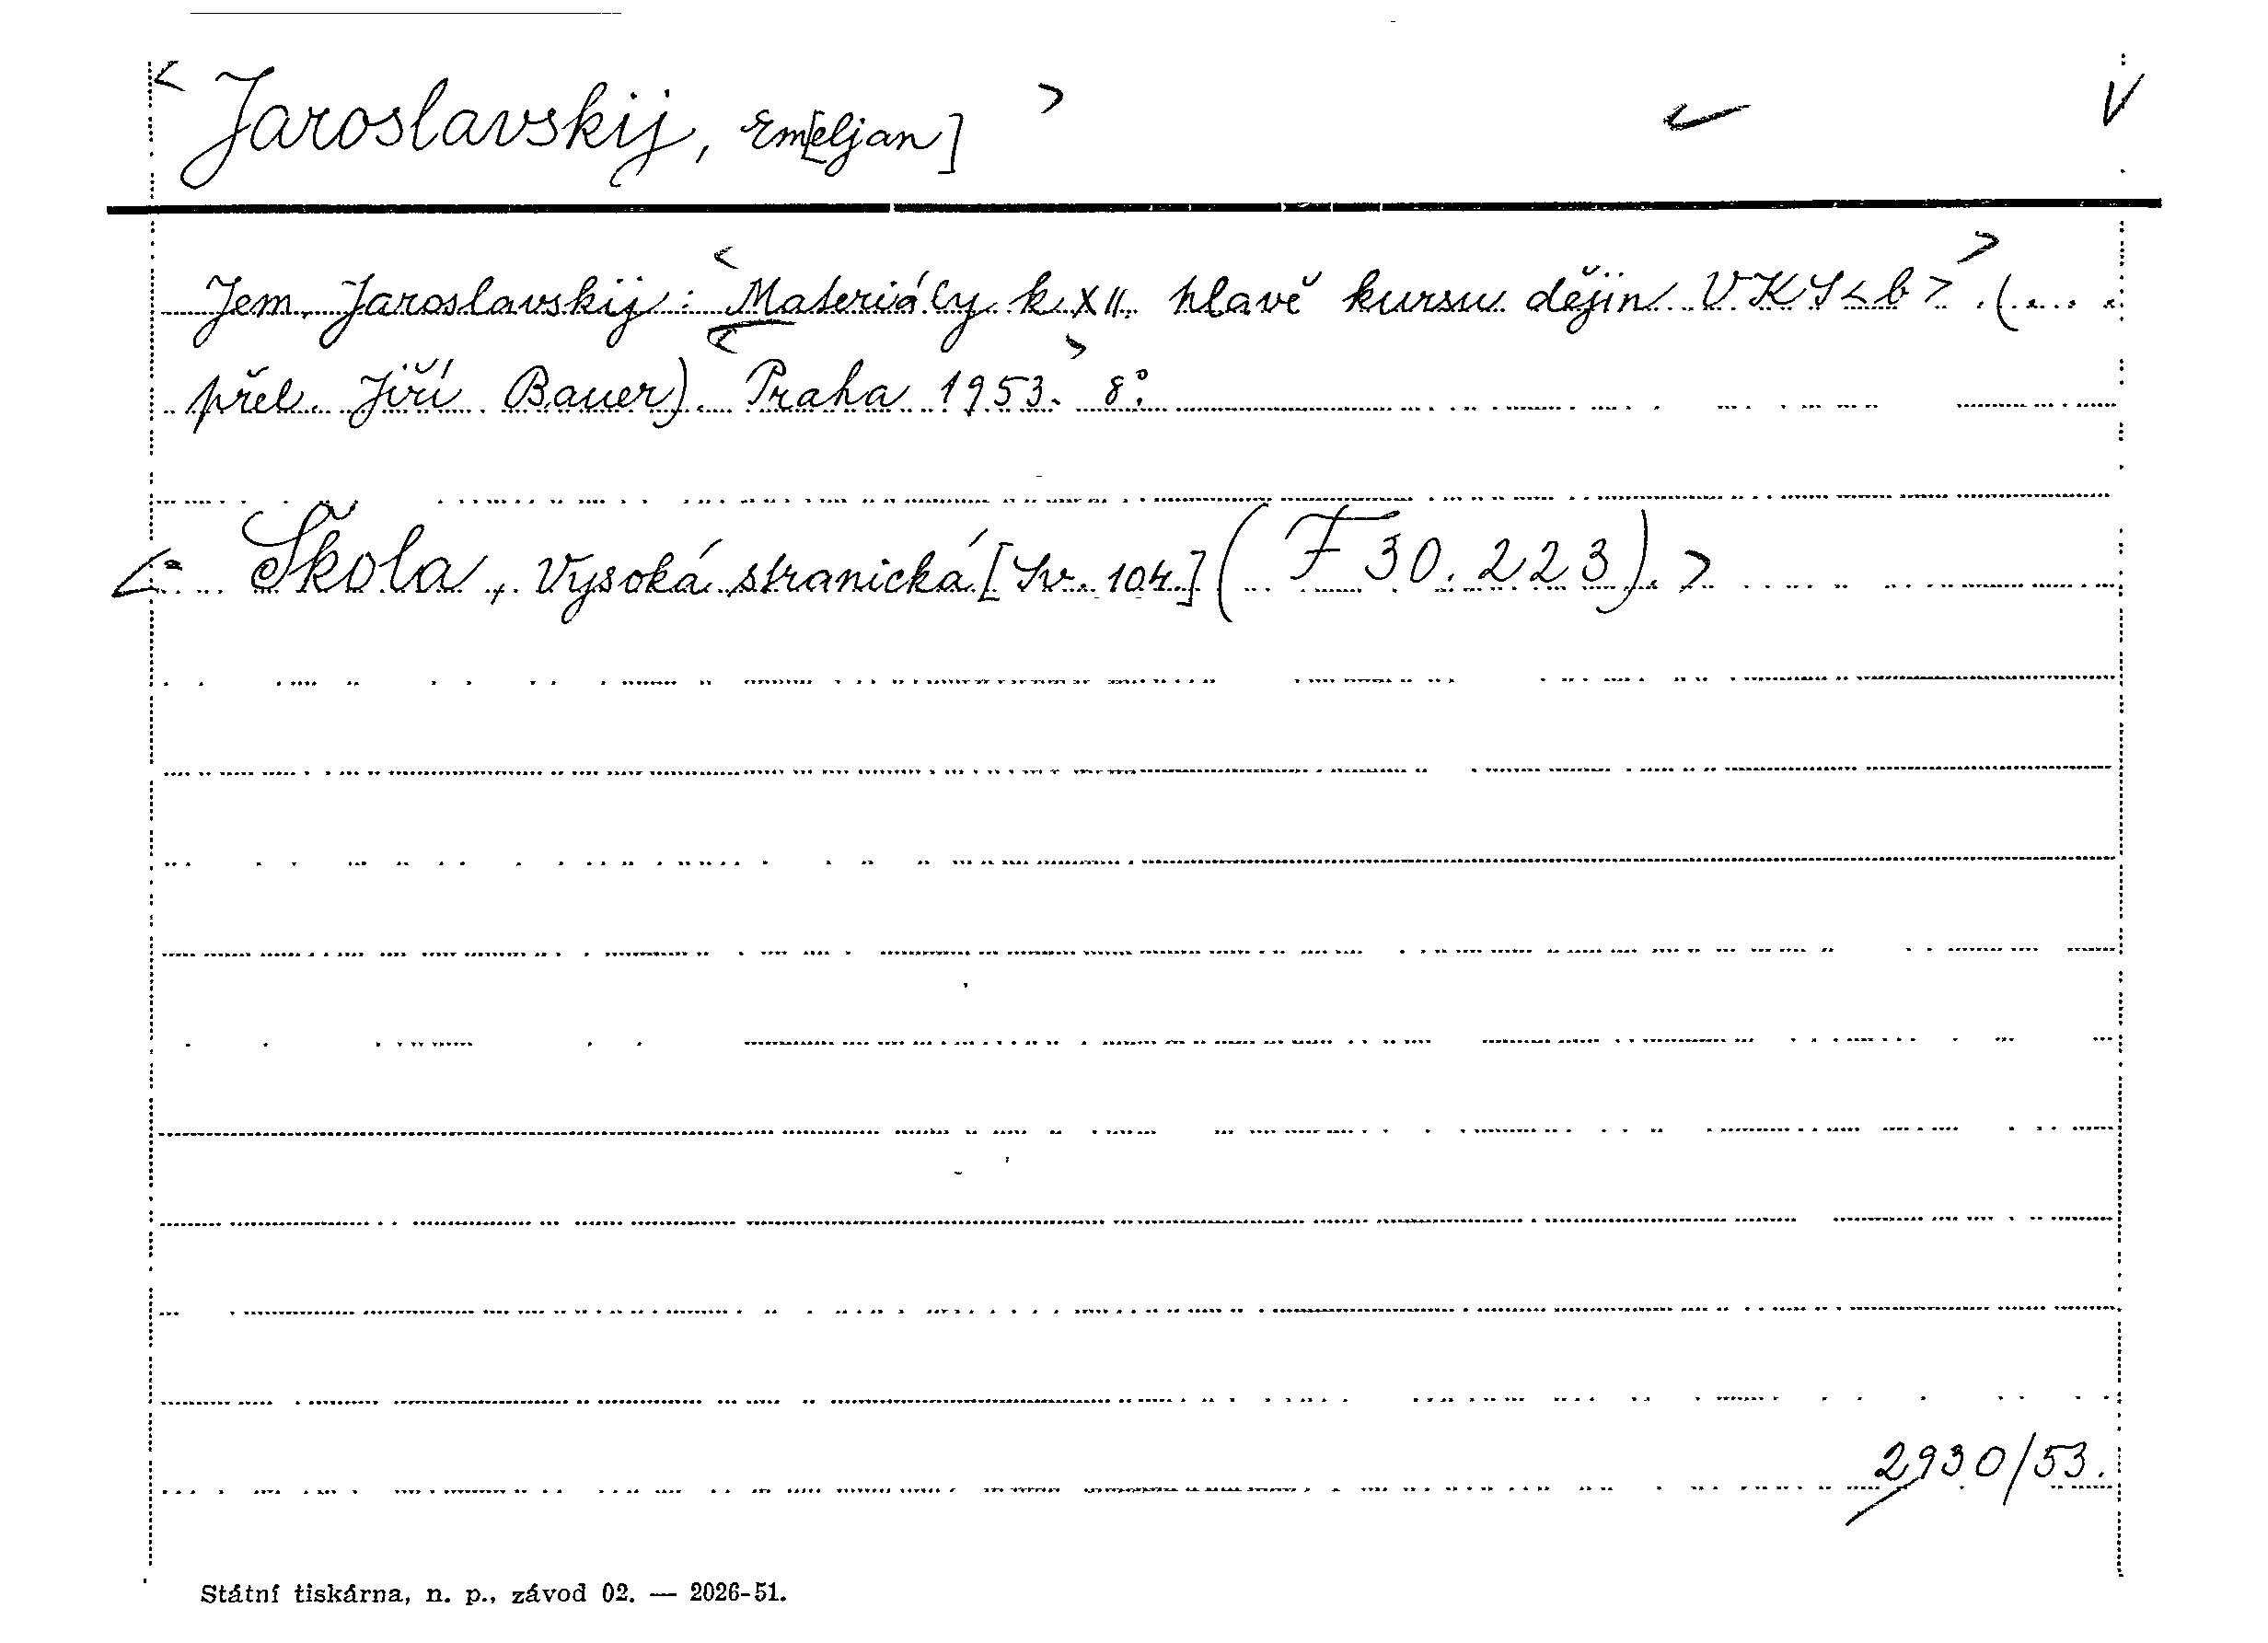 < Jaroslavskij, Em[eljan] > V
Jem. Jaroslavskij: <Materiály k XII. hlavě kursu dějin VKS<b>>. (. . .
přel. Jiří Bauer). <Praha 1953.> 8°.
< Škola, Vysoká stranická [Sv. 104.] (F 30.223). >
2930/53.
Státní tiskárna, n. p., závod 02. — 2026-51.